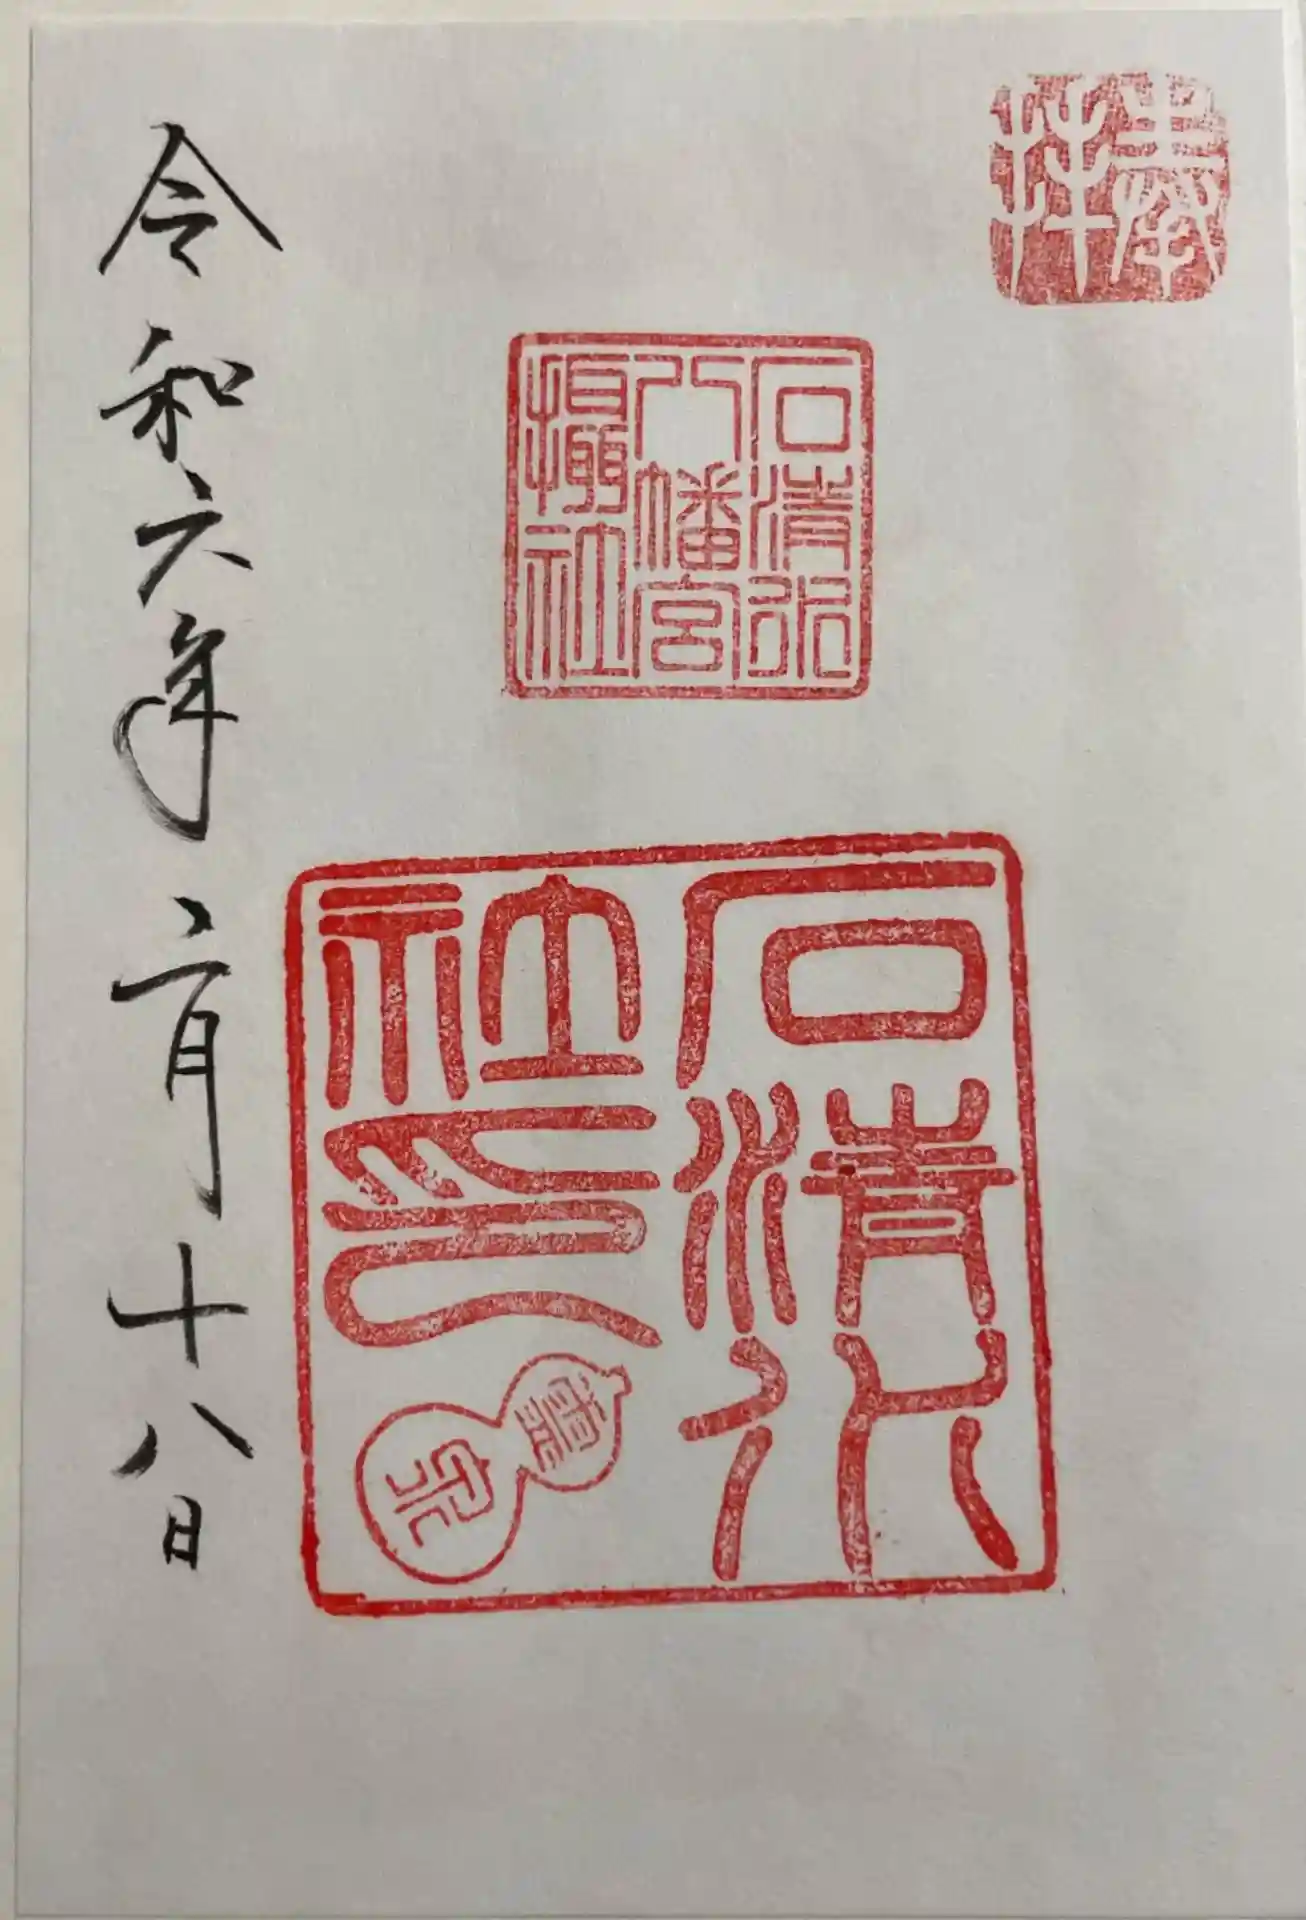 奉拝
石清水
八幡宮
攝社
石清水
社印
靈泉
令和六年二月十八日